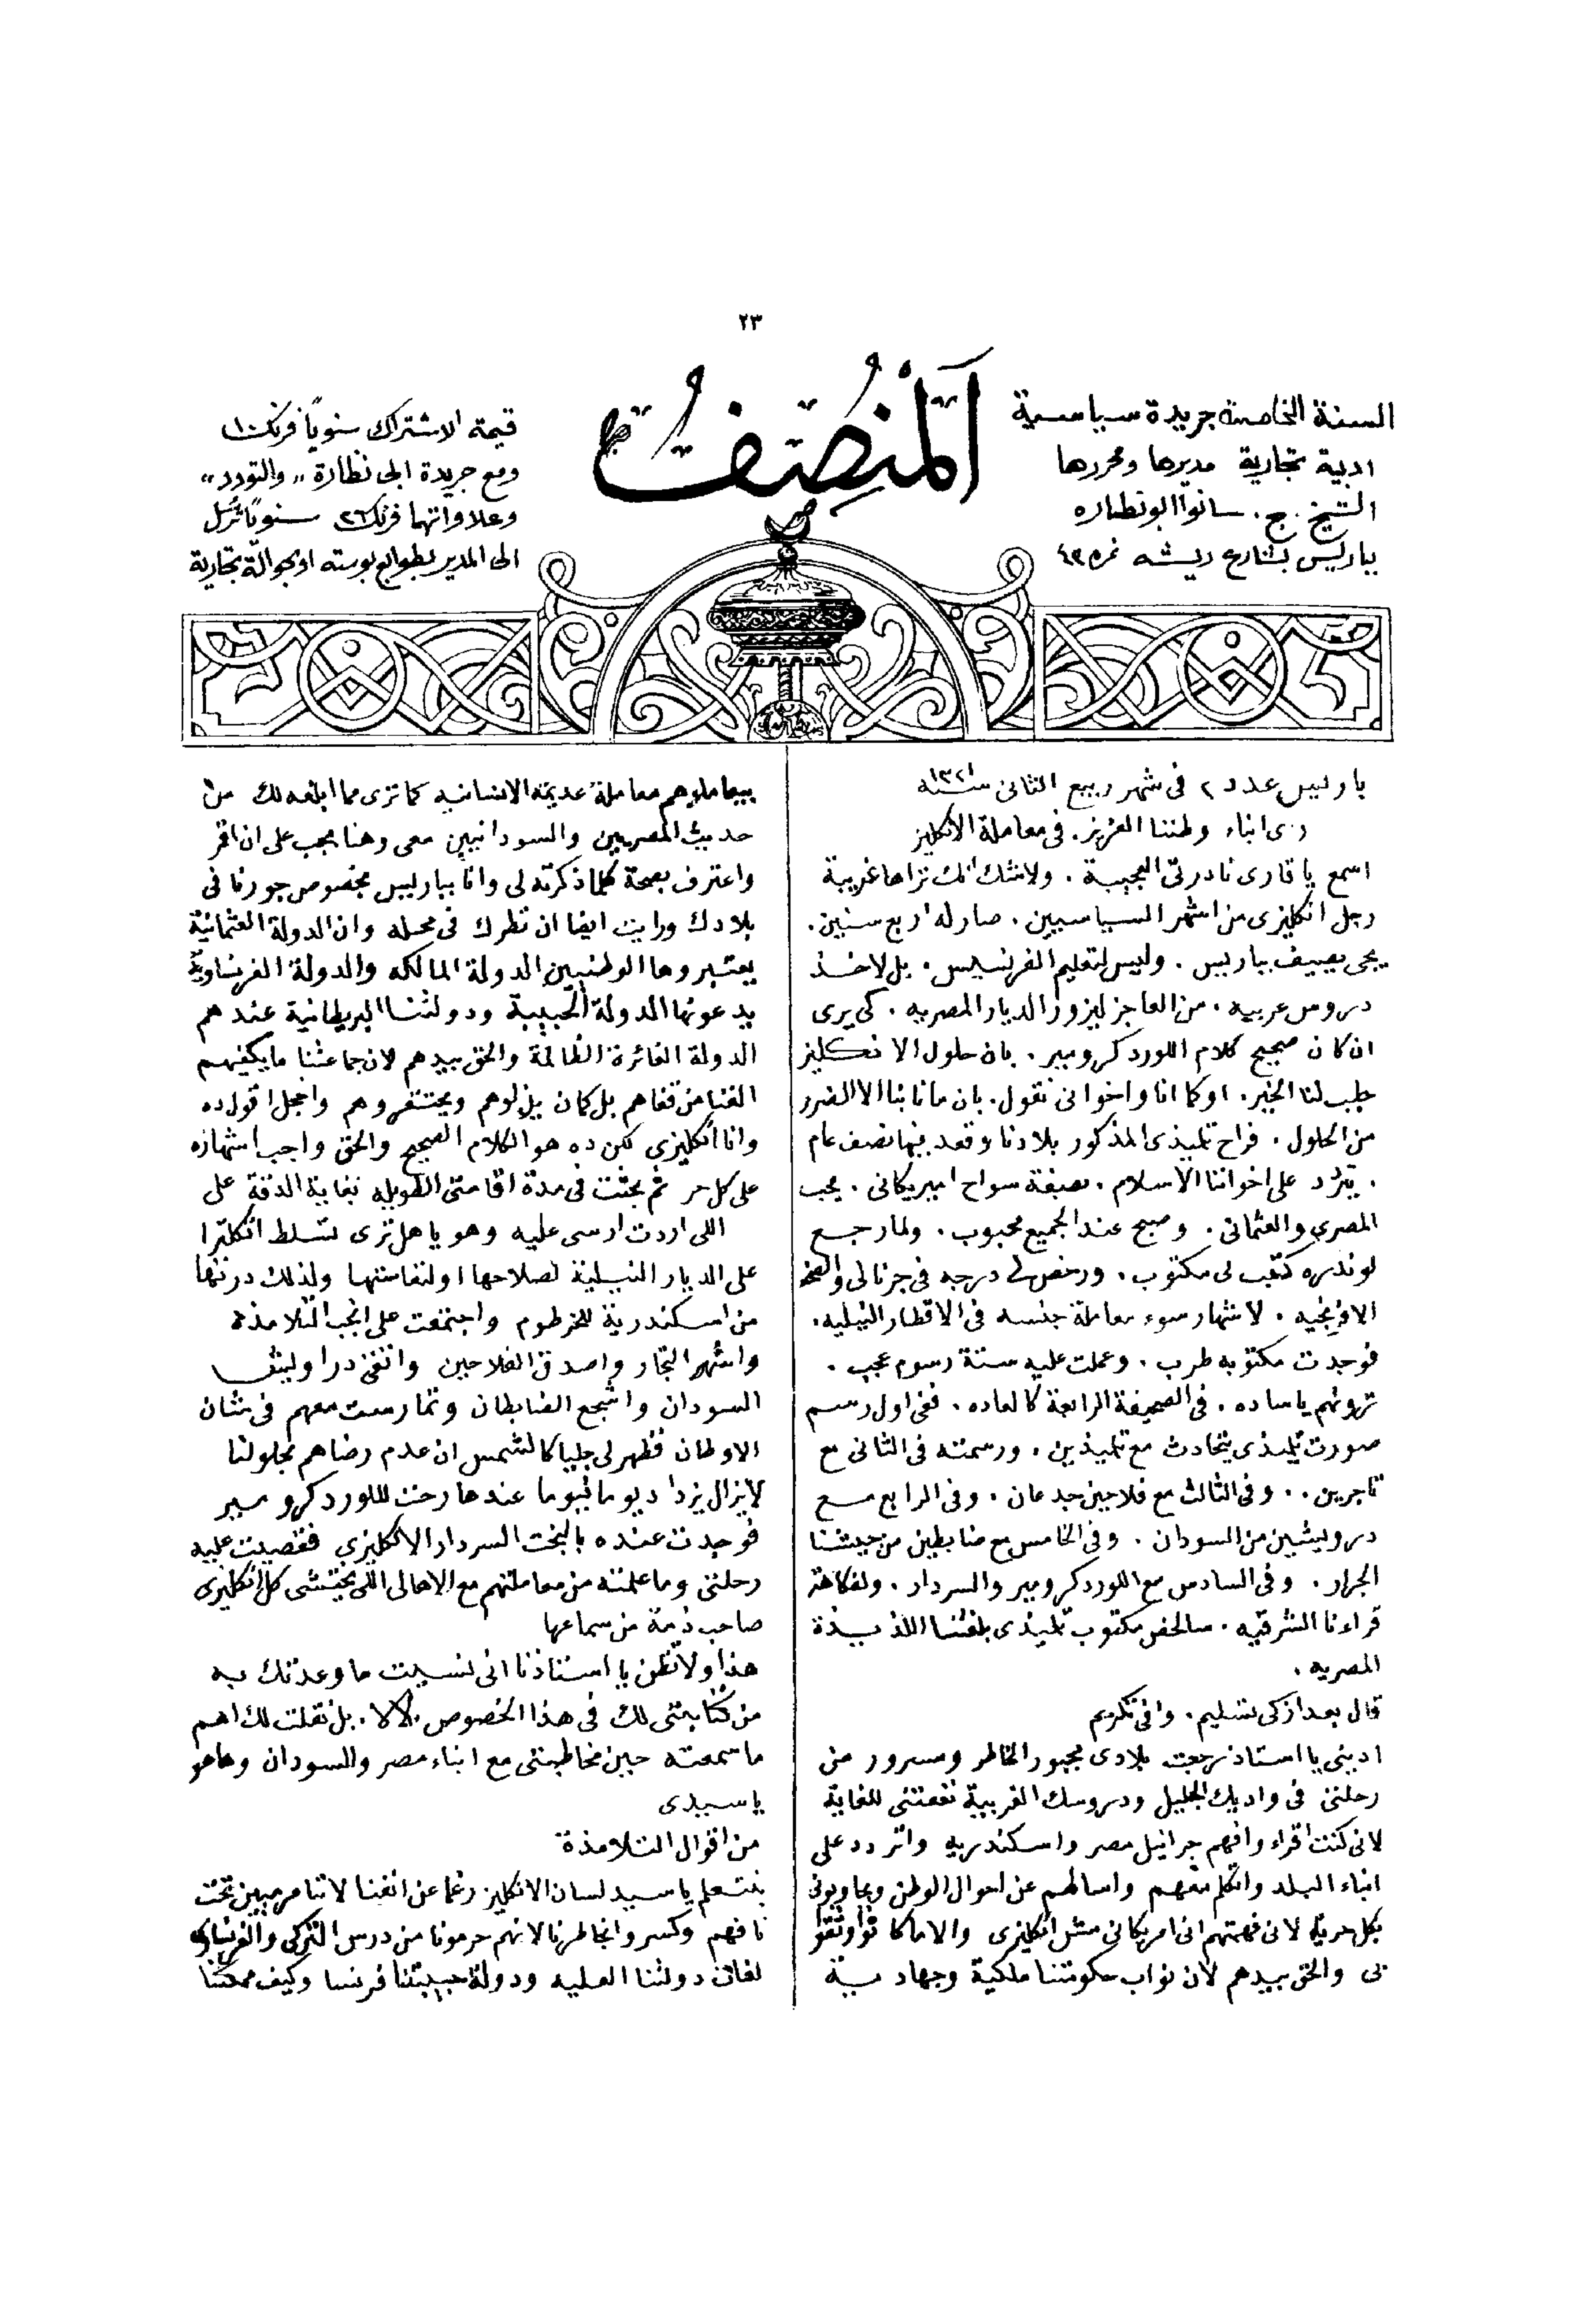 ٢٣
المنصف
السنة الخامسة جريدة سياسية
ادبية تجارية مديرها ومحررها
الشيخ . ج . سانوا ابو نظاره
بباريس بشارع ريشه نمره ٤٣
قيمة الاشتراك سنوياً فرنك ١٠
ومع جريدة ابى نظارة ,, والتودد ,,
وعلاواتهما فرنك ٢٦ سنوياً ترسل
الى المدير بطوابع بوسته او بحوالة تجارية
باريس عدد ٢ فى شهر ربيع الثانى سنة ١٣٢١
رى ابناء وطننا العزيز . فى معاملة الانكليز
اسمع يا قارى نادرتى العجيبة . ولاشك انك تراها غريبة
رجل انكليزى من اشهر السياسيين . صار له اربع سنين .
يجى يصيف بباريس . وليس لتعليم الفرنسيس . بل لاخذ
دروس عربيه . من العاجز ليزور الديار المصريه . كى يرى
ان كان صحيح كلام اللورد كرومير . بان حلول الانكليز
جلب لنا الخير . او كما انا واخوانى نقول . بان ما نابنا الا الضرر
من الحلول . فراح تلميذى المذكور بلادنا وقعد فيها نصف عام
. يتردد على اخواننا الاسلام . بصفة سواح اميريكانى . يحب
المصرى والعثمانى . وصبح عند الجميع محبوب . ولما رجع
لوندره كتب لى مكتوب . ورخص لى درجه فى جرنالى والصحف
الافرنجيه . لاشهار سوء معاملة جنسه فى الاقطار النيليه .
فوجدت مكتوبه طرب . وعملت عليه ستة رسوم عجب .
تروهم يا ساده . فى الصحيفة الرابعة كالعاده . ففى اول رسم
صورت تلميذى يتحادث مع تلميذين . ورسمته فى الثانى مع
تاجرين . . وفى الثالث مع فلاحين جدعان . وفى الرابع مع
درويشين من السودان . وفى الخامس مع ضابطين من جيشنا
الجرار . وفى السادس مع اللورد كرومير والسردار . ولفكاهة
قراءنا الشرقيه . سالخص مكتوب تلميذى بلغتنا اللذيذة
المصريه .
قال بعد ازكى تسليم . وافى تكريم
ادينى يا استاذ رجعت بلادى مجبور الخاطر ومسرور من
رحلتى فى واديك الجليل ودروسك العربية نفعتنى للغاية
لانى كنت اقراء وافهم جرانيل مصر واسكندريه واتردد على
ابناء البلد واتكلم معهم واسالهم عن احوال الوطن ويجاوبونى
بكل حرية لانى فهمتهم انى امريكانى مش انكليزى والا ما كانوا وثقوا
بى والحق بيدهم لان نواب حكومتنا ملكية وجهادية
بيعاملوهم معاملة عديمة الانسانيه كما ترى مما ابلغه لك من
حديث المصريين والسودانيين معى وهنا يجب على ان اقر
واعترف بصحة كلما ذكرته لى وانا بباريس بخصوص جورنا فى
بلادك ورايت ايضا ان نظرك فى محله وان الدولة العثمانية
يعتبروها الوطنيين الدولة المالكه والدولة الفرنساوية
يدعونها الدولة الحبيبة ودولتنا البريطانية عندهم
الدولة الغائرة الظالمة والحق بيدهم لان جماعتنا ما يكفيهم
الغنا من قفاهم بل كمان يذلوهم ويحتقروهم واخجل اقول ده
وانا انكليزى لكن ده هو الكلام الصحيح والحق واجب اشهاره
على كل حر ثم بحثت فى مدة اقامتى الطويله بغاية الدقة على
اللى اردت ارسى عليه وهو يا هل ترى تسلط انكلترا
على الديار النيلية لصلاحها او لتعاستها ولذلك درتها
من اسكندرية للخرطوم واجتمعت على انجب التلامذة
واشهر التجار واصدق الفلاحين واتقى دراويش
السودان واشجع الضابطان وتمارست معهم فى شان
الاوطان فظهر لى جليا كالشمس ان عدم رضاهم بحلولنا
لايزال يزداد يوما فيوما عندها رحت للورد كرومير
فوجدت عنده بالبخت السردار الانكليزى فقصيت عليه
رحلتى وما علمته من معاملتهم مع الاهالى اللى يختشى كل انكليزى
صاحب ذمة من سماعها
هذا ولا تظن يا استاذنا انى نسيت ما وعدتك به
من كتابتى لك فى هذا الخصوص . لالا . بل نقلت لك اهم
ما سمعته حين مخاطبتى مع ابناء مصر والسودان وها هو
يا سيدى
من اقوال التلامذة
بنتعلم يا سيد لسان الانكليز رغما عن انفنا لاننا مرميين تحت
نافهم وكسروا بخاطرنا لانهم حرمونا من درس التركى والفرنساوى
لغات دولتنا العليه ودولة حبيبتنا فرنسا وكيف ممكننا